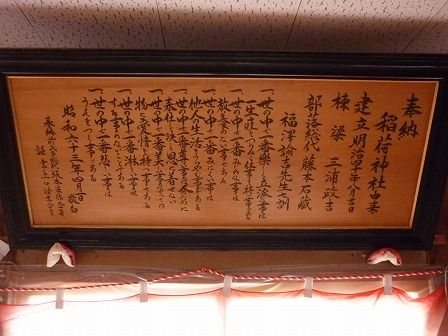 奉納
稲荷神社由来
建立明治四十年八月吉日
棟梁 三浦政吉
部落総代 藤本石蔵
福澤諭吉先生七訓
一、世の中で一番楽しく立派な事は
一生涯つらぬく仕事を持つ事である
一、世の中で一番みじめな事は
教養のない事である
一、世の中で一番みにくい事は
他人の生活をうらやむ事である
一、世の中で一番尊い事は人の為に
奉仕して決して恩にきせない事
一、世の中で一番美しい事はすべての
物に愛情を持つ事である
一、世の中で一番淋しい事は
する事のないことである
一、世の中で一番悲しい事は
うそをつく事である
昭和六十三年四月吉日 敬白